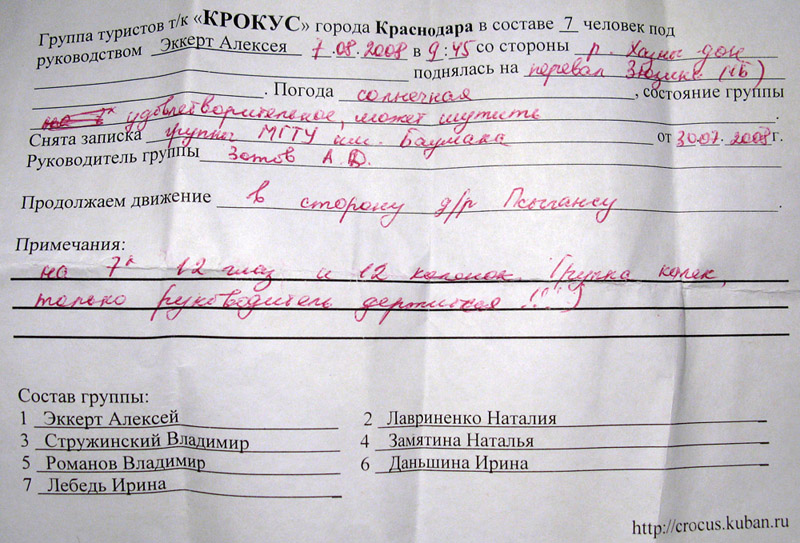 Группа туристов т/к «КРОКУС» города Краснодара в составе 7 человек под
руководством Эккерт Алексея 7.08.2008 в 9:45 со стороны р. Хазны дон
поднялась на перевал Зюцикк (1Б)
. Погода солнечная, состояние группы
удовлетворительное, может шутить.
Снята записка группы МГТУ им. Баумана от 30.07.2008г.
Руководитель группы Зотов А.В.
Продолжаем движение в сторону д/р Псыгансу.
Примечания:
на 7х 12 глаз и 12 коленок. Группа калек,
только руководитель держится (!!!)
Состав группы:
1 Эккерт Алексей 2 Лавриненко Наталия
3 Стружинский Владимир 4 Замятина Наталья
5 Романов Владимир 6 Даньшина Ирина
7 Лебедь Ирина
http://crocus.kuban.ru